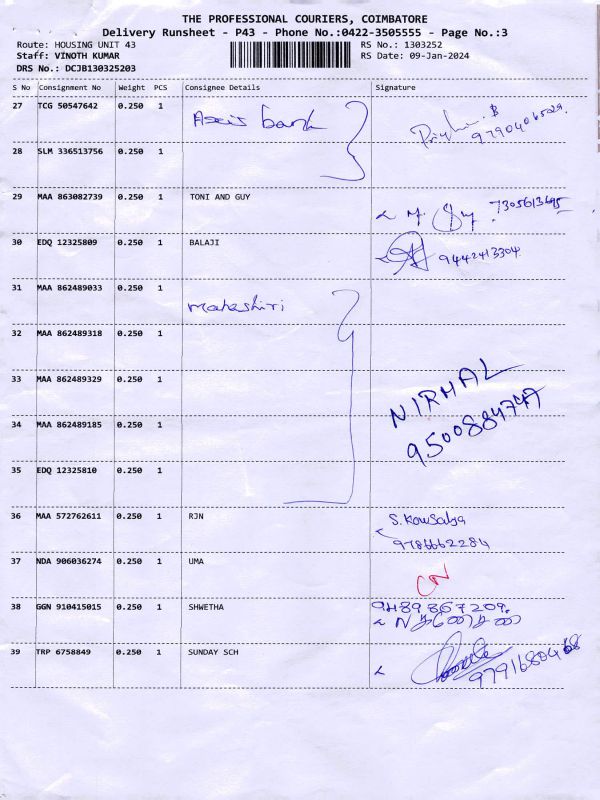 THE PROFESSIONAL COURIERS, COIMBATORE
Delivery Runsheet - P43 - Phone No.:0422-3505555 - Page No.:3
Route: HOUSING UNIT 43 RS No.: 1303252
Staff: VINOTH KUMAR RS Date: 09-Jan-2024
DRS No.: DCJB130325203
S No Consignment No Weight PCS Consignee Details Signature
27 TCG 50547642 0.250 1 Axis bank
28 SLM 336513756 0.250 1
29 MAA 863082739 0.250 1 TONI AND GUY 7305613695
30 EDQ 12325809 0.250 1 BALAJI 9442413304
31 MAA 862489033 0.250 1 Maheshiri
32 MAA 862489318 0.250 1
33 MAA 862489329 0.250 1 NIRMAL
34 MAA 862489185 0.250 1
35 EDQ 12325810 0.250 1
36 MAA 572762611 0.250 1 RJN S. Kousalya
9786662284
37 NDA 906036274 0.250 1 UMA CN
38 GGN 910415015 0.250 1 SHWETHA 9489867209
39 TRP 6758849 0.250 1 SUNDAY SCH